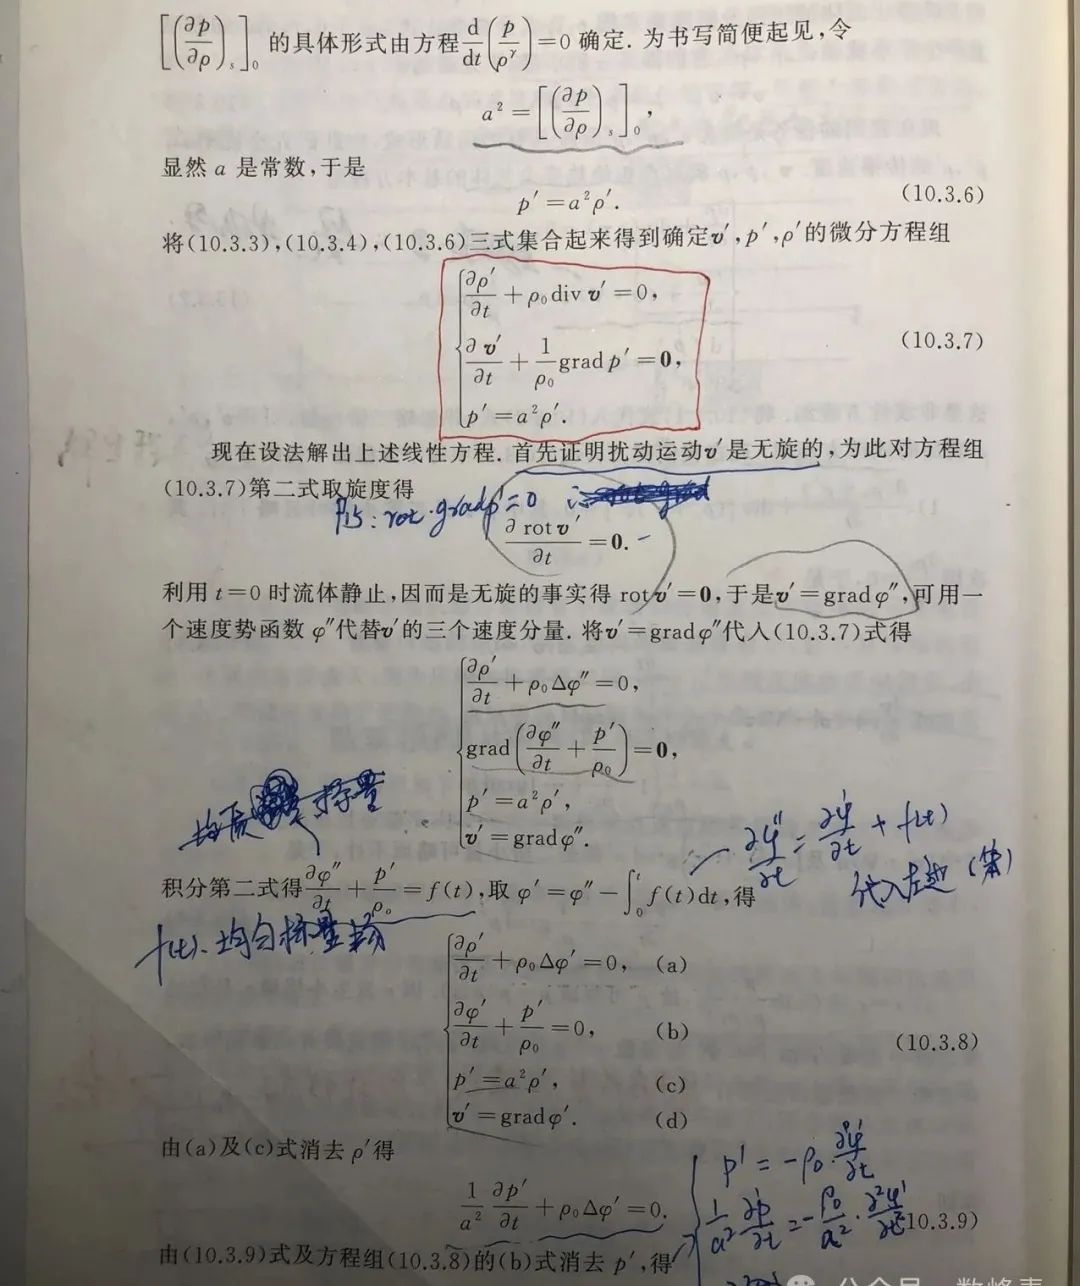 [(∂p/∂ρ)ₛ]₀ 的具体形式由方程 d/dt(p/ρ^γ)=0 确定. 为书写简便起见,令
a²=[(∂p/∂ρ)ₛ]₀,
显然 a 是常数,于是
p′=a²ρ′. (10.3.6)
将(10.3.3),(10.3.4),(10.3.6)三式集合起来得到确定v′,p′,ρ′的微分方程组
∂ρ′/∂t+ρ₀div v′=0,
∂v′/∂t+1/ρ₀ grad p′=0, (10.3.7)
p′=a²ρ′.
现在设法解出上述线性方程. 首先证明扰动运动v′是无旋的,为此对方程组
(10.3.7)第二式取旋度得
P15: rot·gradp′=0
∂ rot v′/∂t=0.
利用 t=0 时流体静止,因而是无旋的事实得 rot v′=0,于是v′=grad φ″,可用一
个速度势函数 φ″代替v′的三个速度分量. 将v′=grad φ″代入(10.3.7)式得
∂ρ′/∂t+ρ₀Δφ″=0,
grad(∂φ″/∂t+p′/ρ₀)=0,
p′=a²ρ′,
v′=grad φ″.
∂φ″/∂t=∂φ′/∂t+f(t)
代入左边
积分第二式得∂φ″/∂t+p′/ρ₀=f(t),取 φ′=φ″−∫₀ᵗf(t)dt,得
f(t).均匀标量场
∂ρ′/∂t+ρ₀Δφ′=0, (a)
∂φ′/∂t+p′/ρ₀=0, (b)
(10.3.8)
p′=a²ρ′, (c)
v′=grad φ′. (d)
由(a)及(c)式消去 ρ′得
p′=−ρ₀·∂φ′/∂t
1/a² ∂p′/∂t+ρ₀Δφ′=0. (10.3.9)
1/a² ∂p′/∂t=−ρ₀/a²·∂²φ′/∂t²
由(10.3.9)式及方程组(10.3.8)的(b)式消去 p′,得